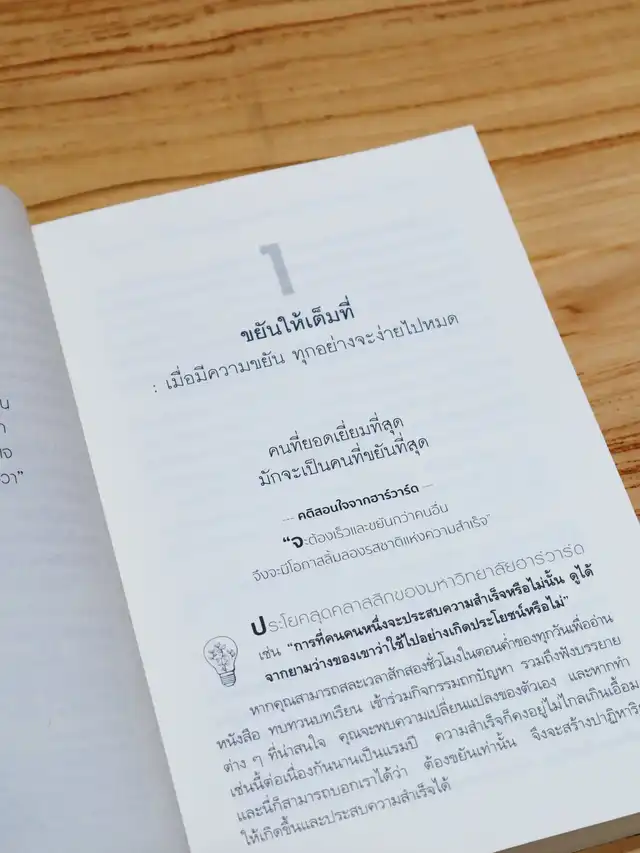 1
ขยันให้เต็มที่
: เมื่อมีความขยัน ทุกอย่างจะง่ายไปหมด
คนที่ยอดเยี่ยมที่สุด
มักจะเป็นคนที่ขยันที่สุด
--- คติสอนใจจากฮาร์วาร์ด ---
“จะต้องเร็วและขยันกว่าคนอื่น
จึงจะมีโอกาสลิ้มลองรสชาติแห่งความสำเร็จ”
ประโยคสุดคลาสสิกของมหาวิทยาลัยฮาร์วาร์ด
เช่น “การที่คนคนหนึ่งจะประสบความสำเร็จหรือไม่นั้น ดูได้
จากยามว่างของเขาว่าใช้ไปอย่างเกิดประโยชน์หรือไม่”
หากคุณสามารถสละเวลาสักสองชั่วโมงในตอนค่ำของทุกวันเพื่ออ่าน
หนังสือ ทบทวนบทเรียน เข้าร่วมกิจกรรมถกปัญหา รวมถึงฟังบรรยาย
ต่าง ๆ ที่น่าสนใจ คุณจะพบความเปลี่ยนแปลงของตัวเอง และหากทำ
เช่นนี้ต่อเนื่องกันนานเป็นแรมปี ความสำเร็จก็คงอยู่ไม่ไกลเกินเอื้อม
และนี่ก็สามารถบอกเราได้ว่า ต้องขยันเท่านั้น จึงจะสร้างปาฏิหาริย์
ให้เกิดขึ้นและประสบความสำเร็จได้